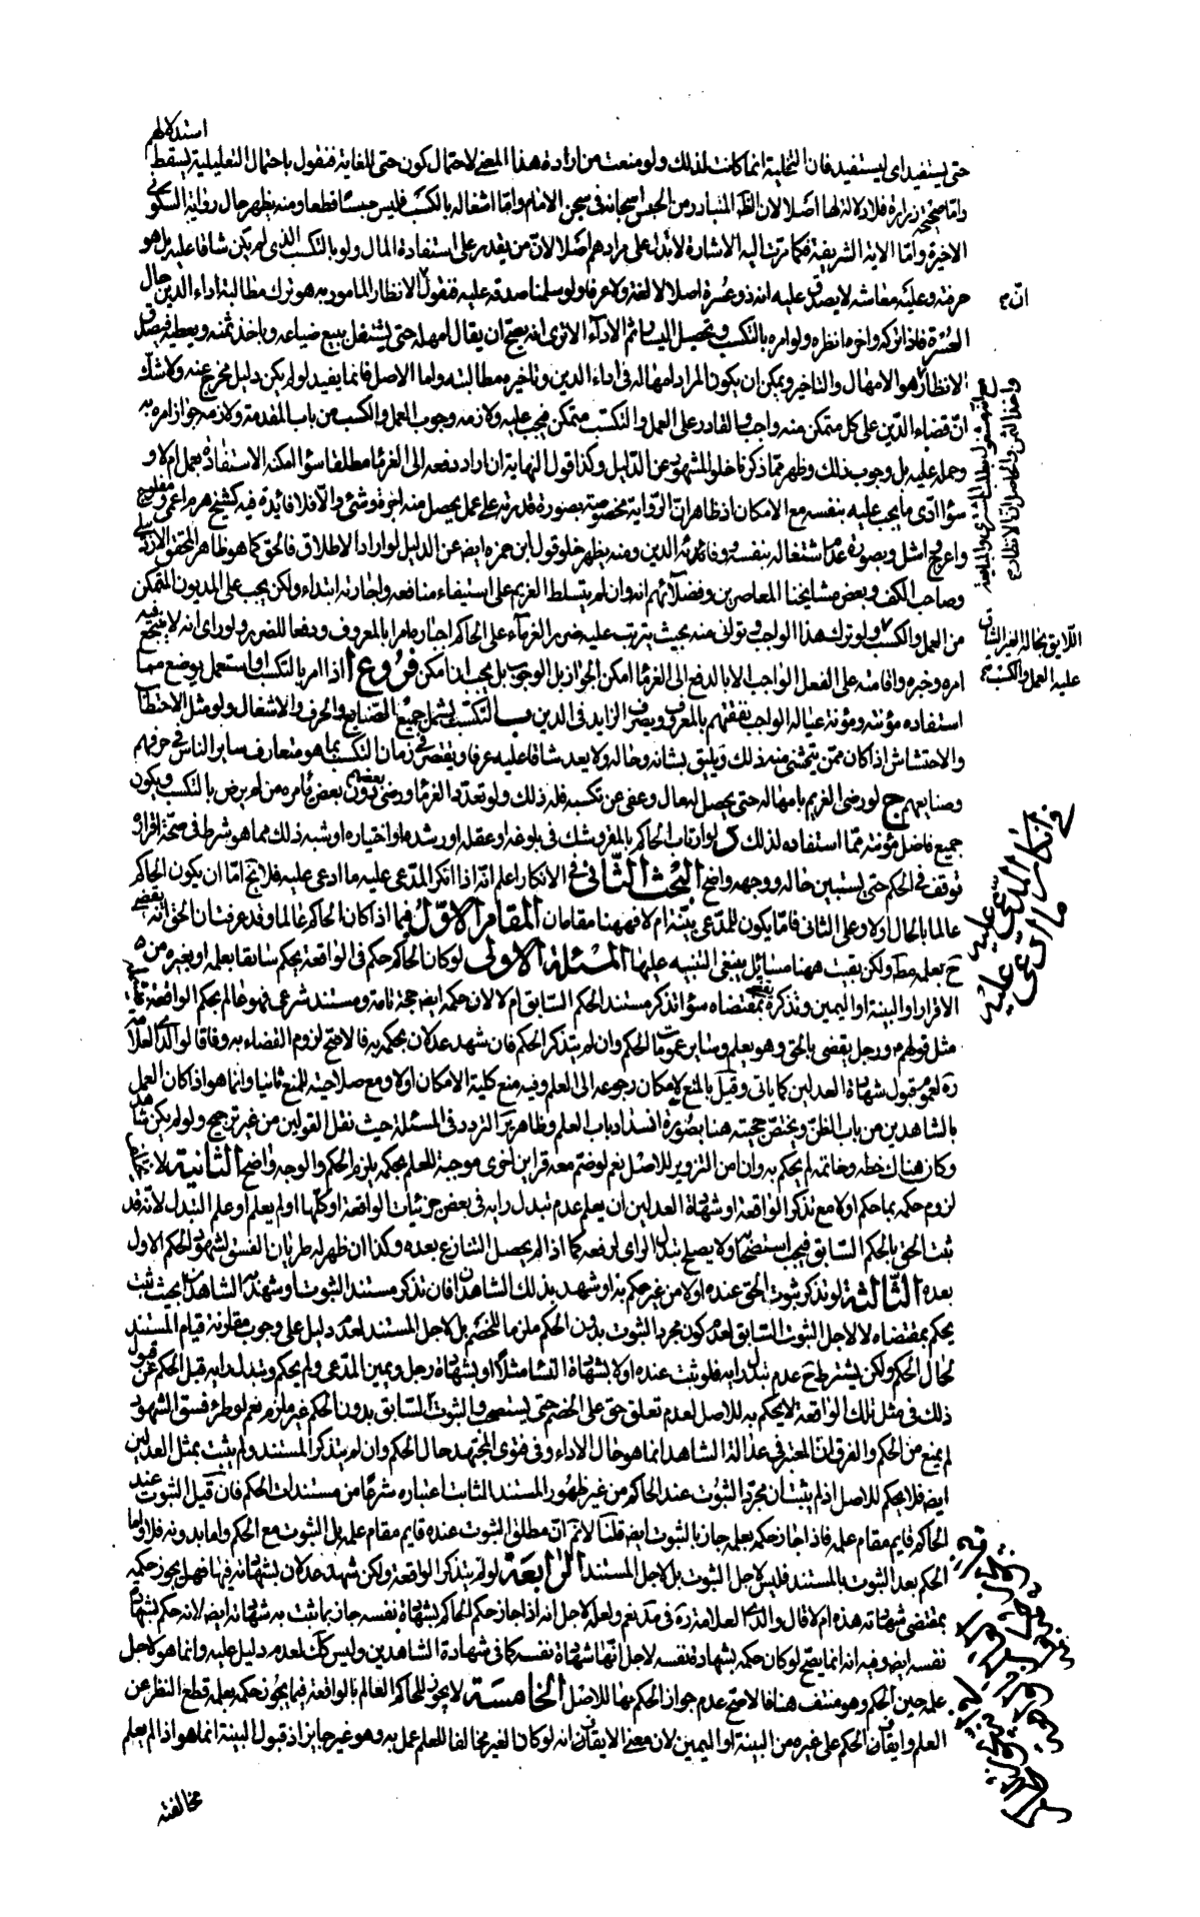 استدلالهم
حتى يستفيد اى ليستفيد فان التخلية انما كانت لذلك ولو منعت من ارادة هذا المعنى لاحتمال كون حتى للغاية فنقول باحتمال التعليلية يسقط
واما صحيحة زرارة فلا دلالة لها اصلا لان الظ المتبادر من الحبس اسجانه فى سجن الامام واما اشغاله بالكسب فليس حبسا قطعا ومنه يظهر حال رواية السكونى
الاخيرة واما الاية الشريفة فكما مرت اليه الاشارة لا تدل على مرادهم اصلا لان من يقدر على استفادة المال ولو بالتكسب الذى لم يكن شاقا عليه بل هو
حرفته وعليه معاشه لا يصدق عليه انه ذو عسرة اصلا لا لغة ولا عرفا ولو سلمنا صدقه عليه فنقول الانظار المامور به هو ترك مطالبة اداء الدين حال
العسرة فاذا تركه واخره انظره ولو امره بالتكسب وتحصيل اليسار ثم الاداء الا ترى انه يصح ان يقال امهله حتى يشتغل ببيع ضياعه وياخذ ثمنه ويعطيه فيصدق
الانظار هو الامهال والتاخير ويمكن ان يكون المراد امهاله فى اداء الدين وتاخيره مطالبته واما الاصل فانما يفيد لو لم يكن دليل مخرج عنه ولا شك
ان قضاء الدين على كل متمكن منه واجب والقادر على العمل والتكسب متمكن فيجب عليه ولازمه وجوب العمل والكسب من باب المقدمة ولازمه جواز امره به
وحمله عليه بل وجوب ذلك وظهر مما ذكرنا خلو المشهور عن الدليل وكذا قول النهاية ان اراد دفعه الى الغرماء مطلقا سواء امكنه الاستفادة بعمل ام لا و
سواء ادى ما يجب عليه بنفسه مع الامكان اذ ظاهر ان الرواية مخصوصة بصورة قدرته على عمل يحصل منه اجرة وشئ والا فلا فائدة فيه كشيخ هرم اعمى ومفلوج
واعرج اشل وبصورة عدم اشتغاله بنفسه وفائدته الدين ومنه يظهر خلو قول ابن حمزه ايضه عن الدليل لو اراد الاطلاق فالحق كما هو ظاهر المحقق الاردبيلى
وصاحب الكف وبعض مشايخنا المعاصرين وفضلائهم انه وان لم يتسلط الغريم على استيفاء منافعه واجارته ابتداء ولكن يجب على المديون المتمكن
من العمل والكسب ولو ترك هذا الواجب وتوانى منه بحيث يترتب عليه ضرر الغرماء على الحاكم اجباره امرا بالمعروف ودفعا للضرر ولو راى انه لا ينجع فيه
امره وخبره وافامنه على الفعل الواجب الا بالدفع الى الغرماء امكن الجواز بل الوجوب بل يجب ان امكن فروع ا اذا امر بالتكسب او استعمل يوضع مما
استفاده مؤنته ومؤنة عياله الواجب نفقتهم بالمعروف ويصرف الزايد فى الدين ب التكسب يشمل جميع الصنايع والحرف والاشغال ولو مثل الاحتطاب
والاحتشاش اذا كان ممن يتمشى منه ذلك ويليق بشانه وحاله ولا يعد شاقا عليه عرفا ويقتصر فى زمان التكسب بما هو متعارف ساير الناس فى حرفهم
وصنايعهم ج لو رضى الغريم بامهاله حتى يحصل له مال وعفى عن تكسبه فله ذلك ولو تعدد الغرماء ورضى بعضهم دون بعض يامره من لم يرض بالتكسب ويكون
جميع فاضل مؤنته مما استفاده لذلك د لو ارتاب الحاكم بالمقر وشك فى بلوغه او عقله او رشده او اختياره او شبه ذلك مما هو شرط فى صحة اقراره
توقف فى الحكم حتى يستبين حاله ووجهه واضح البحث الثانى فى الانكار اعلم انه اذا انكر المدعى عليه ما ادعى عليه فلا يخ اما ان يكون الحاكم
عالما بالحال اولا وعلى الثانى فاما يكون للمدعى بينة ام لا فههنا مقامان المقام الاول فيما اذا كان الحاكم عالما وقد عرفت ان الحق انه يقضى
ح بعلمه مط ولكن بقيت ههنا مسائل ينبغى التنبيه عليها المسئلة الاولى لو كان الحاكم حكم فى الواقعة بحكم سابقا بعلمه او بغيره من
الاقرار او البينة او اليمين وتذكره يقضى بمقتضاه سواء تذكر مستند الحكم السابق ام لا لان حكمه ايضه حجة تامة ومستند شرعى فهو عالم بحكم الواقعة
مثل قولهم ورجل يقضى بالحق وهو يعلم وساير عمومات الحكم وان لم يتذكر الحكم فان شهد عدلان بحكمه به فالاصح لزوم القضاء به وفاقا لوالدى العلامة
ره لعموم قبول شهادة العدلين كما ياتى وقيل بالمنع لامكان رجوعه الى العلم وفيه منع كلية الامكان اولا ومع صلاحيته للمنع ثانيا وانما هو اذا كان العمل
بالشاهدين من باب الظن ويختص حجيته هنا بصورة انسداد باب العلم وظاهر ير التردد فى المسئلة حيث نقل القولين من غير ترجيح ولو لم يكن شاهد
وكان هناك خطه وخاتمه لم يحكم به وان امن التزوير للاصل نعم لو ضم معه قراين اخرى موجبة للعلم بحكمه يلزم الحكم والوجه واضح الثانية لا
لزوم حكمه بما حكم اولا مع تذكر الواقعة او شهادة العدلين ان يعلم عدم تبدل رايه فى بعض جزئيات الواقعة او كلها او لم يعلم او علم التبدل لانه قد
ثبت الحق بالحكم السابق فيجب استصحابه ولا يصلح تبدل الراى لرفعه كما اذا لم يحصل التنازع بعده وكذا ان ظهر له طريان الفسق لشهود الحكم الاول
بعده الثالثة لو تذكر ثبوت الحق عنده اولا من غير حكم به او شهد بذلك الشاهدان فان تذكر مستند الثبوت او شهد به الشاهدان بحيث ثبت
يحكم بمقتضاه لا لاجل الثبوت السابق لعدم كون مجرد الثبوت بدون الحكم ملزما للخصم بل لاجل المستند لعدم دليل على وجوب مقارنة قيام المستند
لحال الحكم ولكن يشترط ح عدم تبدل رايه فلو ثبت عنده اولا بشهادة النساء مثلا او بشهادة رجل ويمين المدعى ولم يحكم وتبدل رايه قبل الحكم عن قبول
ذلك فى مثل تلك الواقعة لا يحكم به للاصل لعدم تعلق حق على الخصم حتى يستصحب والثبوت السابق بدون الحكم غير ملزم نعم لو طرء فسق الشهود
لم يمنع من الحكم والفرق ان المعتبر فى عدالة الشاهد انما هو حال الاداء وفى فتوى المجتهد حال الحكم وان لم يتذكر المستند ولم يثبت بمثل العدلين
ايضه فلا يحكم للاصل اذ لم يثبت ان مجرد الثبوت عند الحاكم من غير ظهور المستند الثابت اعتباره شرعا من مستندات الحكم فان قيل الثبوت عند
الحاكم قايم مقام علمه فاذا جاز حكمه بعلمه جاز بالثبوت ايضه قلنا لا نم ان مطلق الثبوت عنده قايم مقام علمه بل الثبوت مع الحكم واما بدونه فلا واما
الحكم بعد الثبوت بالمستند فليس لاجل الثبوت بل لاجل المستند الرابعة لو لم يتذكر الواقعة ولكن شهد عدلان بشهادته فيها فهل يجوز حكمه
بمقتضى شهادته هذه ام لا قال والدى العلامة ره فى مد نعم ولعله لاجل انه اذا جاز حكم الحاكم بشهادة نفسه جاز بما ثبت به شهادته ايضه لانه حكم بشهادة
نفسه ايضه وفيه انه انما يصح لو كان حكمه بشهادة نفسه لاجل انها شهادة نفسه كما فى شهادة الشاهدين وليس كك لعدم دليل عليه وانما هو لاجل
علمه حين الحكم وهو منتف هنا فالاصح عدم جواز الحكم بها للاصل الخامسة لا يجوز للحاكم العالم بالواقعة فيما يجوز حكمه بعلمه قطع النظر عن
العلم وايقاف الحكم على غيره من البينة او اليمين لان معنى الايقاف انه لو كان الغير مخالفا للعلم عمل به وهو غير جايز اذ قبول البينة انما هو اذا لم يعلم
مخالفته
ان
اللايق بحاله الغير الشاق
عليه العمل والكسب
فى انكار المدعى عليه
ما ادعى عليه